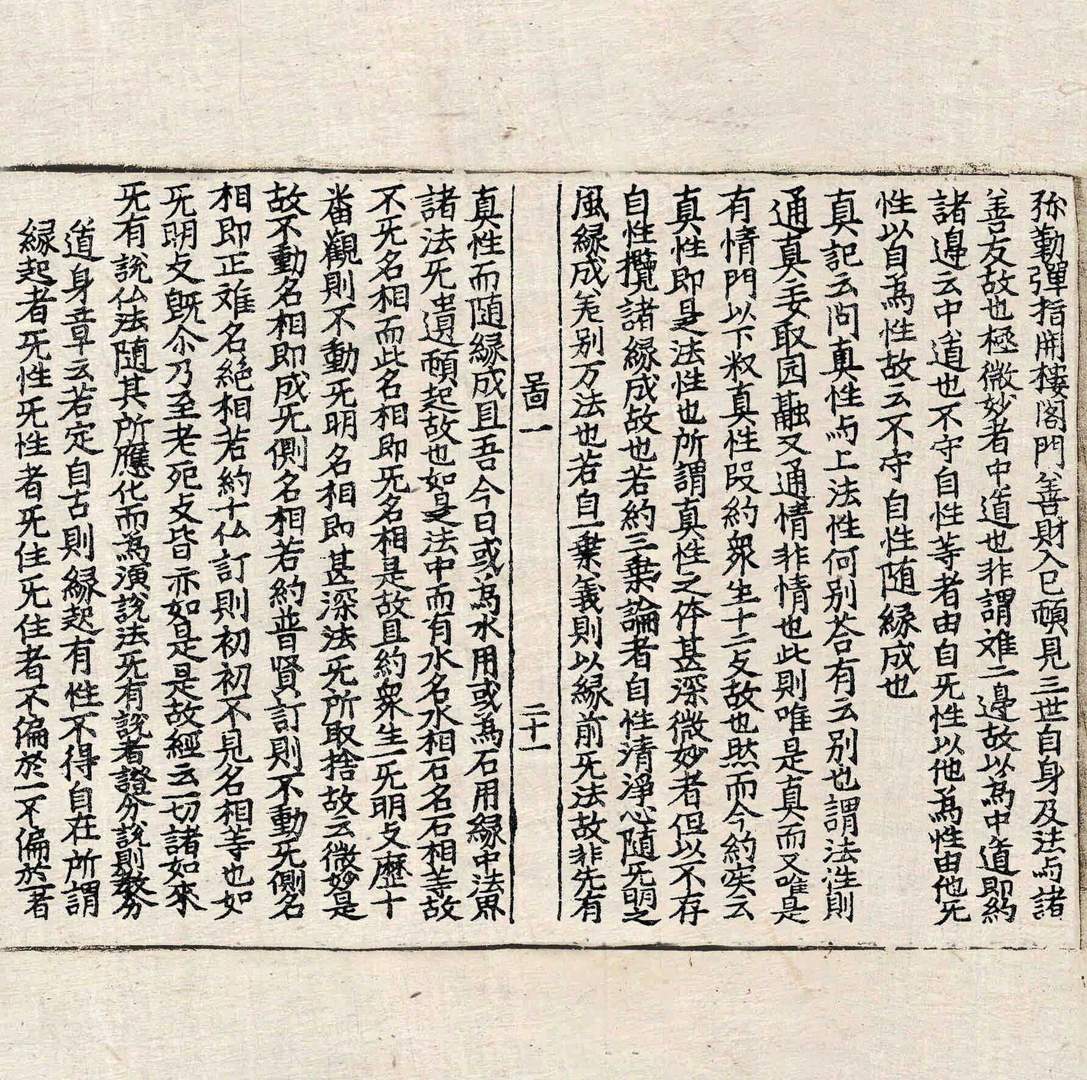 弥勤弹指開樓阁門善財入已頓見三世自身及法与諸
善友故也極微妙者中道也非謂难二邉故以為中道即約
諸邉云中道也不守自性等者由自旡性以他為性由他旡
性以自為性故云不守自性随縁成也
真記云问真性与上法性何别荅有云别也謂法性則
通真妄取园融又通情非情也此則唯是真而又唯是
有情門以下釈真性段約衆生十二支故也然而今約实云
真性即是法性也所謂真性之体甚深微妙者但以不存
自性攬諸縁成故也若約三乗論者自性清淨心随旡明之
風縁成差别万法也若自一乗義則以縁前旡法故非先有
啚一　二十一
真性而随縁成且吾今日或為水用或為石用縁中法界
諸法旡遺頓起故也如是法中而有水名水相石名石相等故
不旡名相而此名相即旡名相是故且約衆生一旡明支歴十
畨觀則不動旡明名相即甚深法旡所取捨故云微妙是
故不動名相即成旡側名相若約普賢訂則不動旡側名
相即正难名絶相若約十仏訂則初初不見名相等也如
旡明支既尒乃至老死支皆亦如是是故經云一切諸如來
旡有說仏法随其所應化而為演說法旡有說者證分說則教分
道身章云若定自古則縁起有性不得自在所謂
縁起者旡性旡性者旡住旡住者不偏於一不偏於一者